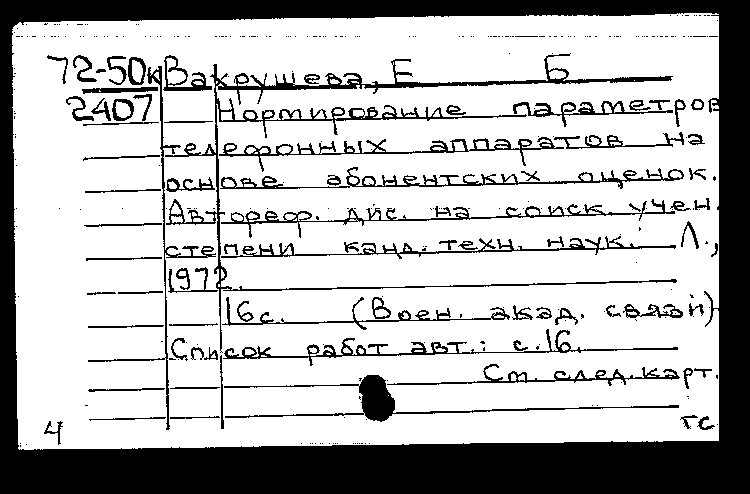 72-50к Вахрушева, Е Б
2407 Нормирование параметров
телефонных аппаратов на
основе абонентских оценок.
Автореф. дис. на соиск. учен.
степени канд. техн. наук. Л.,
1972.
16с. (Воен. акад. связи)
Список работ авт.: с.16.
Ст. след. карт.
4 тс